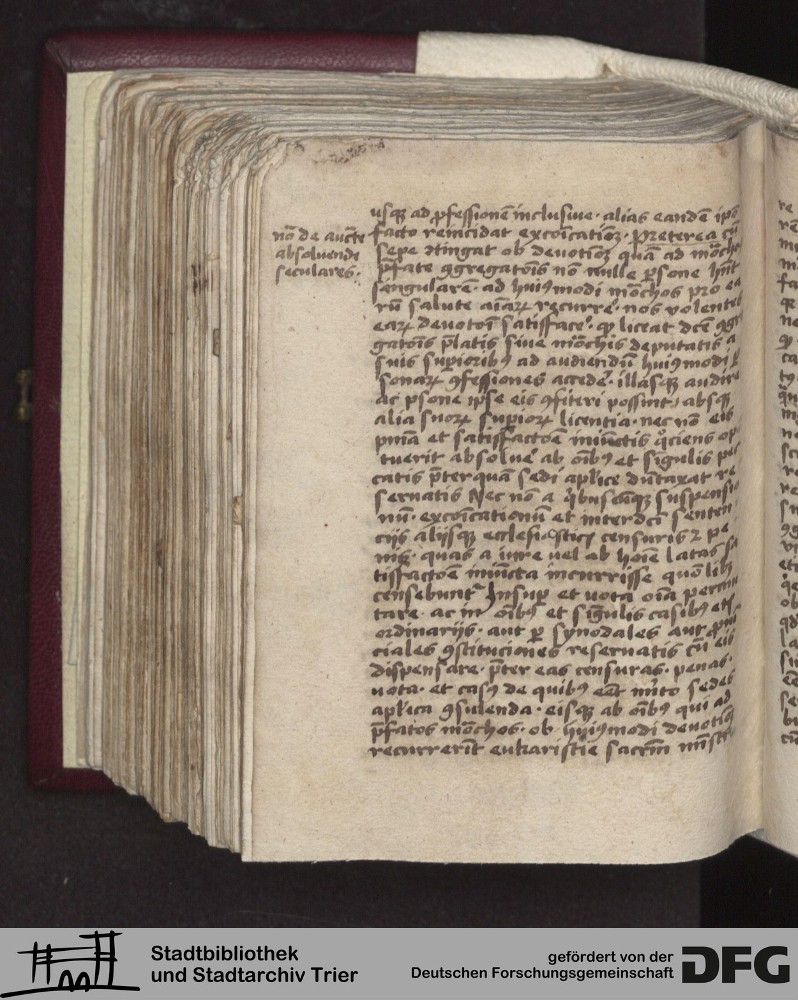 usqȝ ad ꝓfessionē inclusiue · alias eandē ipō
facto reincidat excōicatiōꝫ · preterea cū
sepe ꝯtingat ob deuotiōꝫ quā ad mōcho
p̄fate ꝯgregatōis nō nulle ꝑsone hn̄t
sengularē · ad huiꝰmodi mōchos pro ea
rū salute aīaꝝ recurrẽ · nos volentes
eaꝝ deuotōi satisfacẽ · qꝫ liceat dc̄e ꝯgre
gatōis p̄latis siue mōchis deputatis a
suis suꝑioribꝰ ad audiendū huiꝰmodi ꝑ
sonaꝝ ꝯfessiones accedẽ · illasqꝫ audire
ac ꝑsone ipse eis ꝯfiteri possint · absqꝫ
alia suoꝝ suꝑioꝝ licentia · nec nō eis
pn̄ia et satisfactōe iniūctis qͦciens op
tuerit absoluẽ ab oībꝰ et sīgulis pec
catis p̄terquā sedi aplīce dūtaxat re
seruatis Nec nō a qͥbuscūqꝫ suspensio
nū · excōicationū et interdc̄i senten
ciis aliisqꝫ ecclesiasticis censuris ⁊ pe
nis · quas a iure uel ab hoīe latas sa
tisfactōe iniūcta incurrisse quōlibꝫ
censebunt᷑ Insuꝑ et uota oīa permu
tare · ac in oībꝰ et sīgulis casibꝰ etiā
ordinariis · aut ꝑ synodales aut ꝓuī
ciales ꝯstituciones reseruatis cū eis
dispensare · p̄ter eas censuras · penas ·
uota · et casꝰ de quibꝰ eēt mīto sedes
aplīca ꝯsulenda · eisqꝫ ab oībꝰ qui ad
p̄fatos mōchos · ob huiꝰmodi deuotiōꝫ
recurrerīt eukaristie sacrm̄ mīstra
nō de auctē
absoluendi
seculares ·
Stadtbibliothek
und Stadtarchiv Trier
gefördert von der
Deutschen Forschungsgemeinschaft
DFG